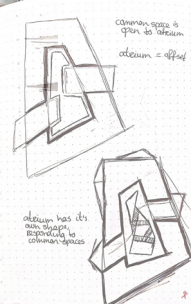 common space is
open to atrium
atrium = offset
atrium has it's
own shape,
responding to
common-spaces